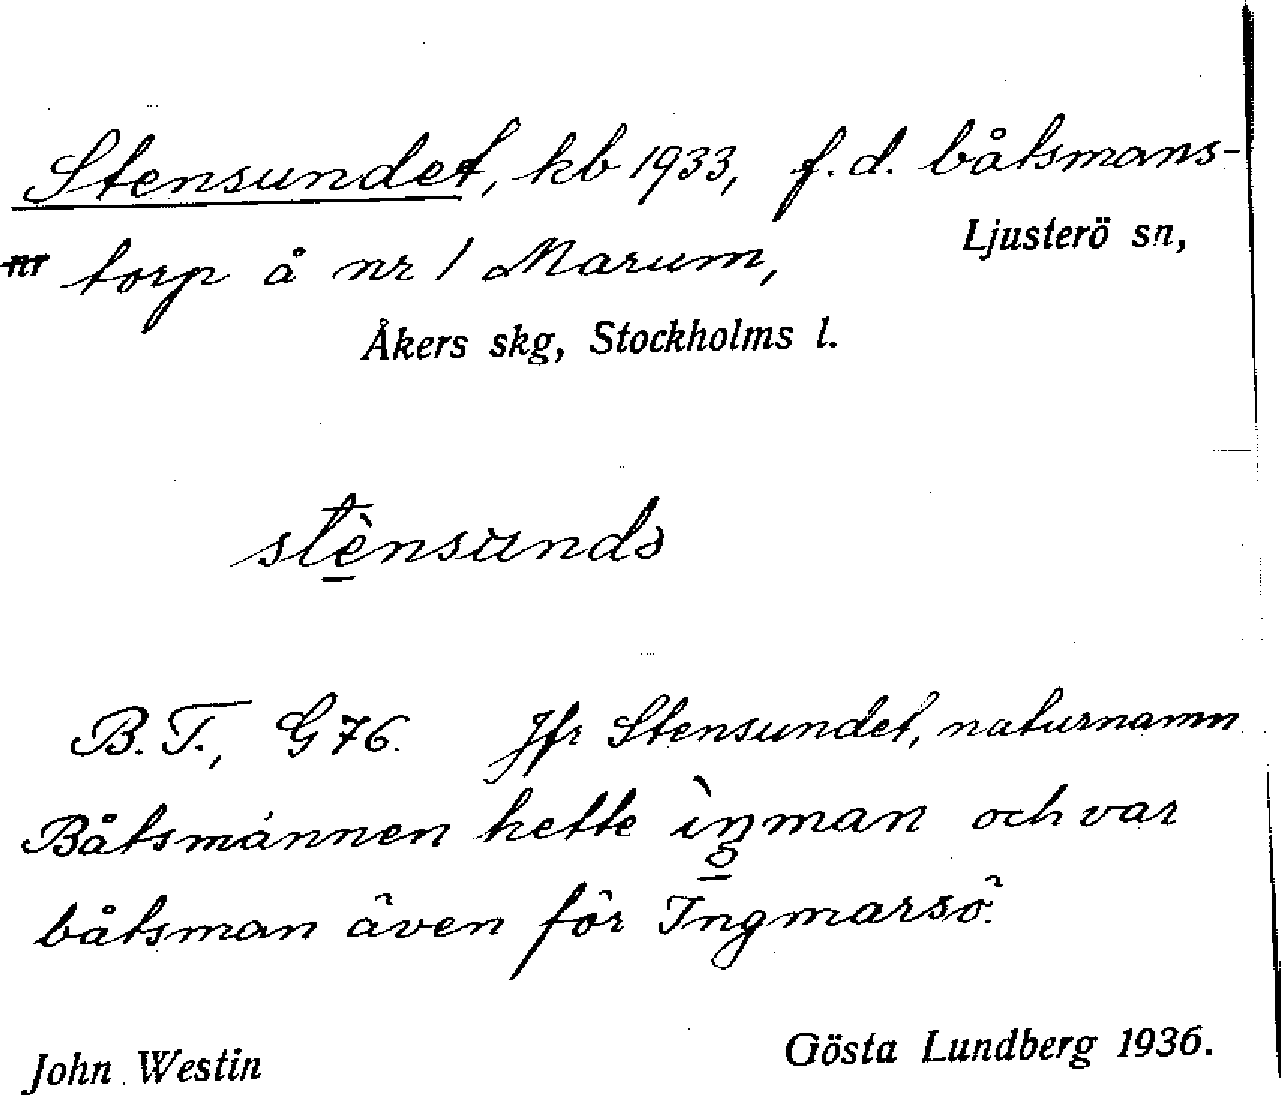 Stensundet, kb 1933, f.d. båtsmans-
Ljusterö sn,
nr torp å nr 1 Marum,
Åkers skg, Stockholms l.
stènsundə
B.T., G76. Jfr Stensundet, naturnamn.
Båtsmännen hette ìŋman och var
båtsman även för Ingmarsö.
John Westin
Gösta Lundberg 1936.